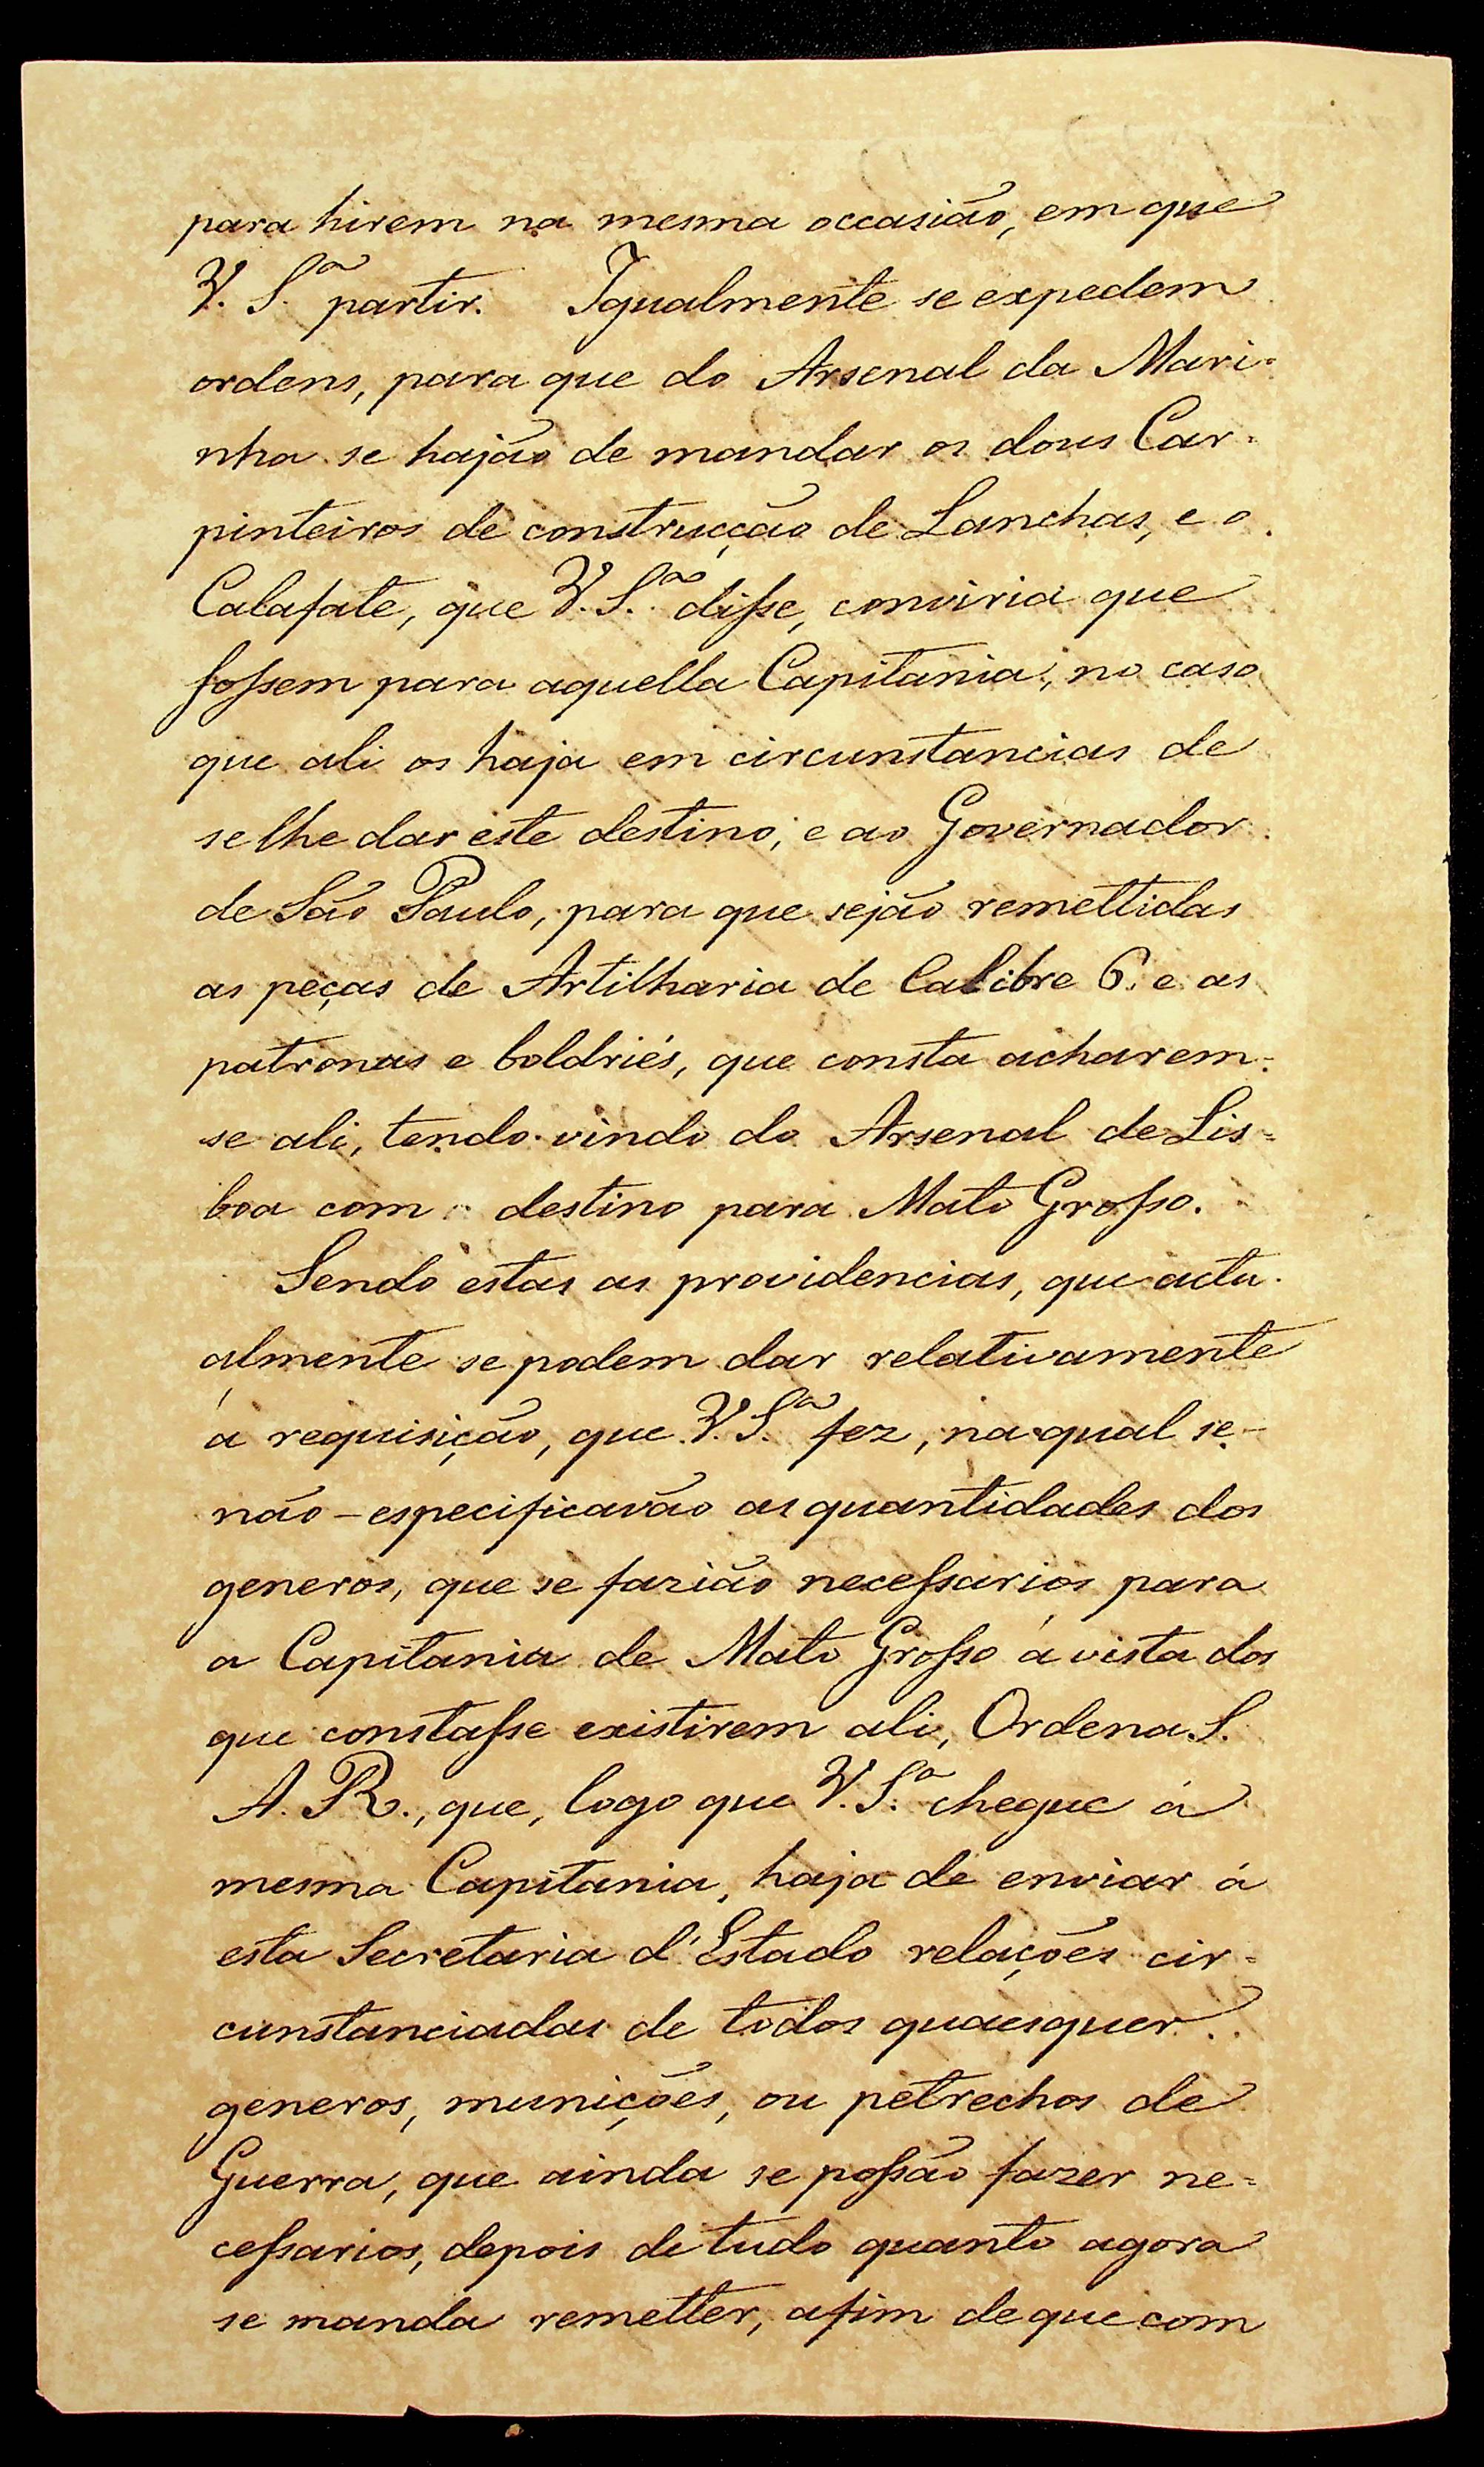 para hirem na mesma occasião, em que
V. S.ª partir. Igualmente se expedem
ordens, para que do Arsenal da Mari-
nha se hajão de mandar os dous Car-
pinteiros de construcção de Lanchas, e o
Calafate, que V. S.ª disse, conviria que
fossem para aquella Capitania, no caso
que ali os haja em circunstancias de
se lhe dar este destino; e ao Governador
de São Paulo, para que sejão remettidas
as peças de Artilharia de Calibre 6. e as
patronas e boldriés, que consta acharem-
se ali, tendo vindo do Arsenal de Lis-
boa com destino para Mato Grosso.
Sendo estas as providencias, que actu-
almente se podem dar relativamente
á requisição, que V. S.ª fez, na qual se-
não-especificavão as quantidades dos
generos, que se fazião necessarios para
a Capitania de Mato Grosso á vista dos
que constasse existirem ali, Ordena S.
A. R., que, logo que V. S.ª chegue á
mesma Capitania, haja de enviar á
esta Secretaria d'Estado relações cir-
cunstanciadas de todos quaesquer
generos, munições, ou petrechos de
Guerra, que ainda se possão fazer ne-
cessarios, depois de tudo quanto agora
se manda remetter, afim de que com